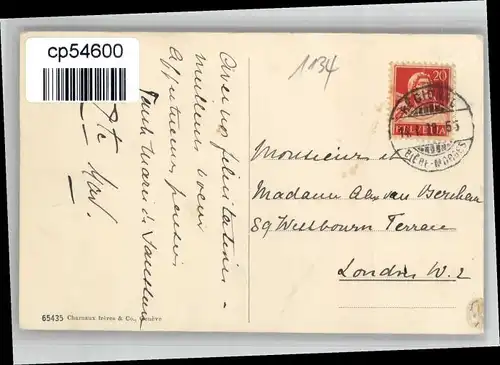 cp54600
1134
20
HELVETIA
BIÈRE-MORGES
Avec nos félicitations -
meilleurs voeux
Affectueuses pensées
Monsieur et
Madame Alex van Berchem
59 Westbourn Terrace
Londres W. 2
65435 Charnaux frères & Co., Genève